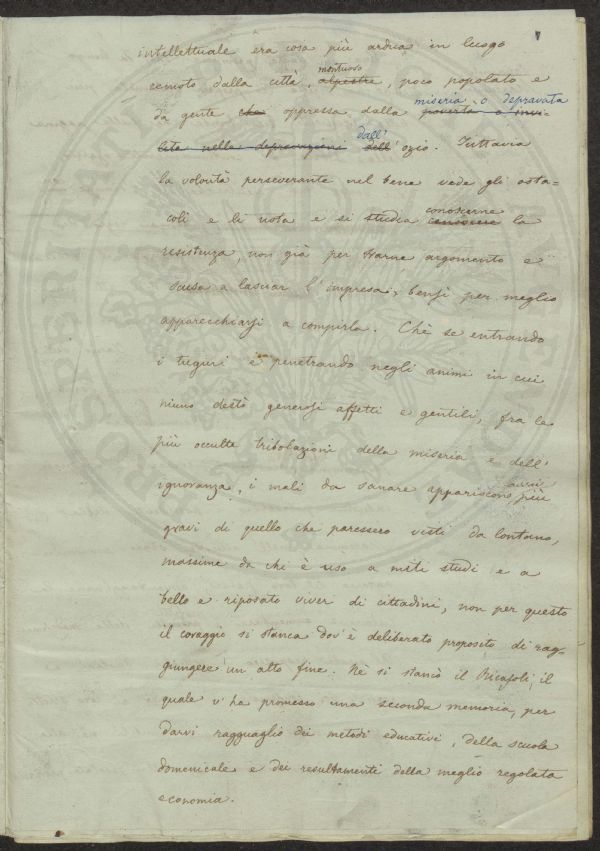 7
intellettuale era cosa più ardua in luogo
montuoso
remoto dalla città, alpestre, poco popolato e
miseria o depravata
da gente che oppressa dalla povertà o invi-
dall'
lita nella depravazione dell' ozio. Tuttavia
la volontà perseverante nel bene vede gli osta-
conoscerne
coli e li nota e si studia conoscere la
resistenza, non già per trarne argomento e
scusa a lasciar l'impresa, bensì per meglio
apparecchiarsi a compirla. Chè se entrando
i tuguri e penetrando negli animi in cui
niuno destò generosi affetti e gentili, fra le
più occulte tribolazioni della miseria e dell'
assai
ignoranza, i mali da sanare appariscono più
gravi di quello che paressero visti da lontano,
massime da chi è uso a miti studi e a
bello e riposato viver di cittadini, non per questo
il coraggio si stanca dov'è deliberato proposito di rag-
giungere un alto fine. Nè si stancò il Ricasoli, il
quale v'ha promesso una seconda memoria, per
darvi ragguaglio dei metodi educativi, della scuola
domenicale e dei resultamenti della meglio regolata
economia.